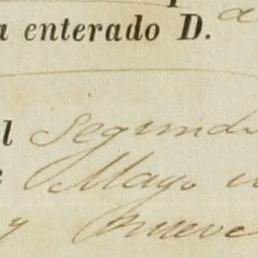 a enterado D. a
l Segundo
Mayo
y nueve